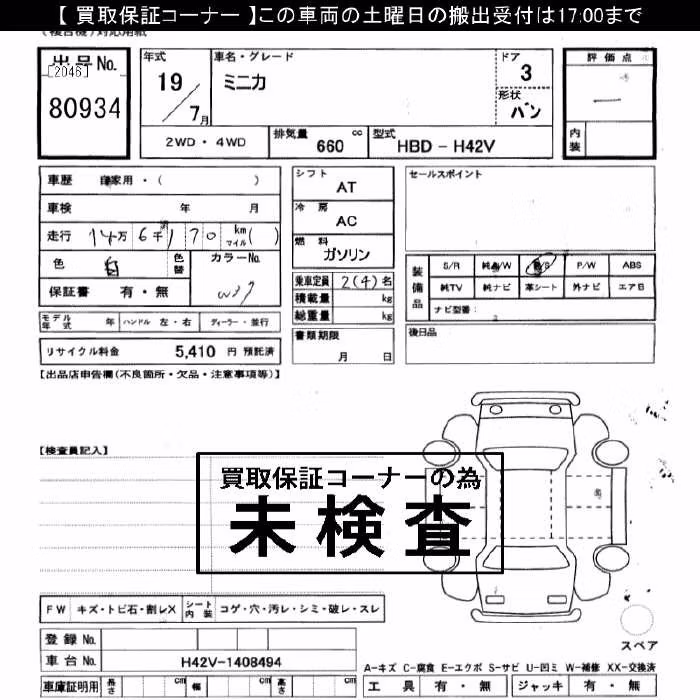 【 買取保証コーナー 】この車両の土曜日の搬出受付は17:00まで
出品No.
[2046]
80934
年式
19
7月
車名・グレード
ミニカ
ドア
3
形状
バン
2WD・4WD
排気量
660 cc
型式
HBD - H42V
評価点
一
内装
車歴 自家用・( )
車検 年 月
走行 14万 6千 170 km マイル( )
色 白
色替
カラーNo.
W37
保証書 有・無
モデル年式 年 ハンドル 左・右 ディーラー・並行
リサイクル料金 5,410 円 預託済
シフト
AT
冷房
AC
燃料
ガソリン
乗車定員 2(4)名
積載量 kg
総重量 kg
書類期限
月 日
セールスポイント
装備品
S/R 純A/W P/S P/W ABS
純TV 純ナビ 革シート 外ナビ エアB
ナビ型番:
後日品
【出品店申告欄(不良箇所・欠品・注意事項等)】
【検査員記入】
買取保証コーナーの為
未検査
FW キズ・トビ石・割レX シート内装 コゲ・穴・汚レ・シミ・破レ・スレ
登録No.
車台No. H42V-1408494
車庫証明用 長さ cm 幅 cm 高さ cm
スペア
A-キズ C-腐食 E-エクボ S-サビ U-凹ミ W-補修 XX-交換済
工具 有・無 ジャッキ 有・無